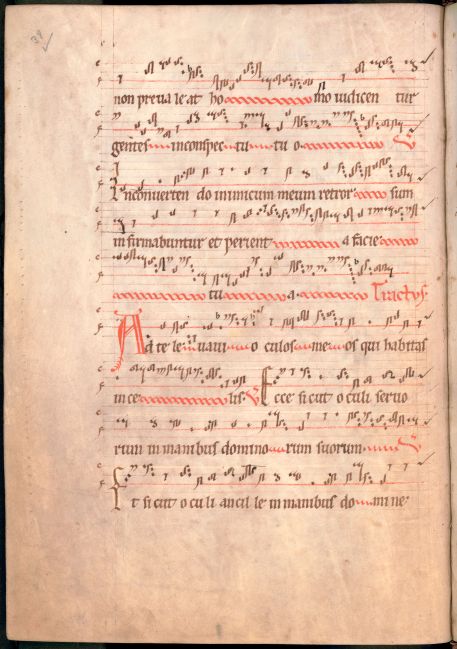 non prevaleat ho mo iudicen tur
gentes in conspec tu tu o V
In convertendo inimicum meum retror sum
infirmabuntur et perient a facie
tu a Tractus
Ad te levavi oculos meos qui habitas
in ce lis V Ecce sicut oculi servo
rum in manibus domino rum suorum V
Et sicut oculi ancille in manibus domine